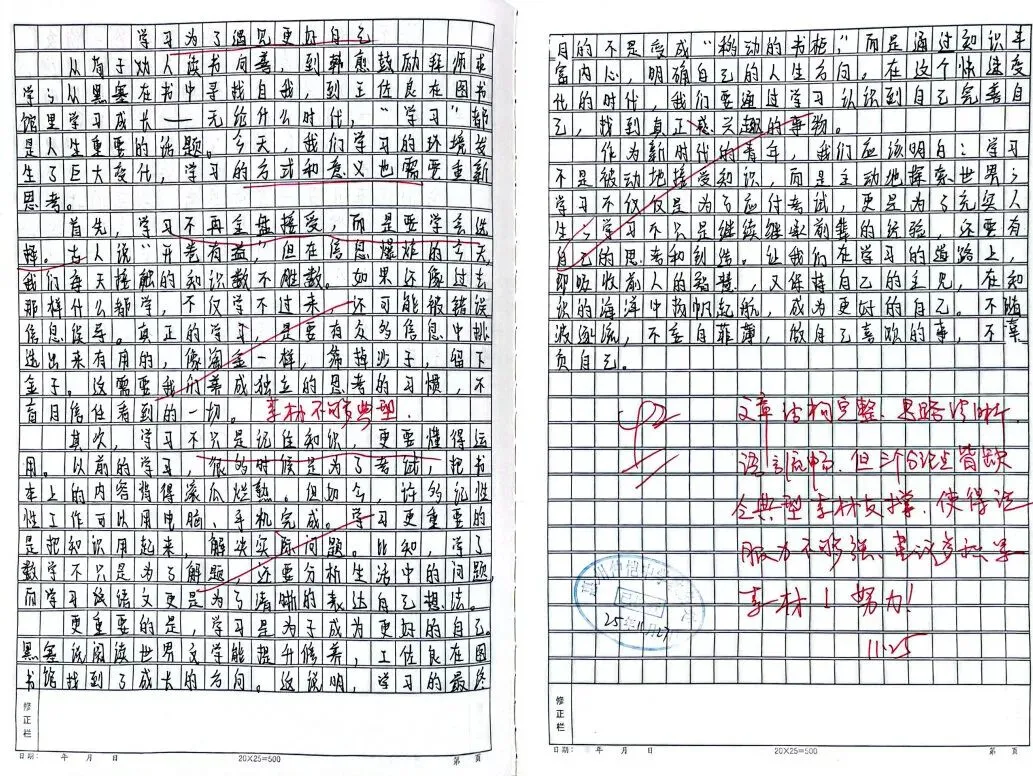 学习为了遇见更好自己
从荀子劝人读书向善，到韩愈鼓励拜师求
学；从黑塞在书中寻找自我，到王佐良在图书
馆里学习成长——无论什么时代，“学习”都
是人生重要的话题。今天，我们学习的环境发
生了巨大变化，学习的方式和意义也需要重新
思考。
首先，学习不再全盘接受，而是要学会选
择。古人说“开卷有益”，但在信息爆炸的今天，
我们每天接触的知识数不胜数。如果还像过去
那样什么都学，不仅学不过来，还可能被错误
信息误导。真正的学习，是要在众多信息中挑
选出来有用的，像淘金一样，筛掉沙子，留下
金子。这需要我们养成独立的思考的习惯，不
盲目信任看到的一切。
素材不够典型.
其次，学习不只是记住知识，更要懂得运
用。以前的学习，很多时候是为了考试，把书
本上的内容背得滚瓜烂熟。但如今，许多记性
性工作可以用电脑、手机完成。学习更重要的
是把知识用起来，解决实际问题。比如，学了
数学不只是为了解题，还要分析生活中的问题，
而学习语文更是为了清晰的表达自己想法。
更重要的是，学习是为于成为更好的自己。
黑塞说阅读世界文学能提升修养，王佐良在图
书馆找到了成长的方向。这说明，学习的最终
修正栏
日期： 年 月 日
20×25=500
第 页
目的不是变成“移动的书柜，”而是通过知识丰
富内心，明确自己的人生方向。在这个快速变
化的时代，我们要通过学习认识到自己完善自
己，找到真正感兴趣的事物。
作为新时代的青年，我们应该明白：学习
不是被动地接受知识，而是主动地探索世界；
学习不仅仅是为了应付考试，更是为了充实人
生；学习不只是继续继承前辈的经验，还要有
自己的思考和创造。让我们在学习的道路上，
即吸收前人的智慧，又保持自己的主见，在知
识的海洋中扬帆起航，成为更好的自己。不随
波逐流，不妄自菲薄，做自己喜欢的事，不辜
负自己。
42
文章结构完整、思路清晰
语言流畅.但三个分论点皆缺
乏典型素材支撑.使得说
服力不够强、建议多积累
素材！努力！
11.25
25年11月27
修正栏
日期： 年 月 日
20×25=500
第 页